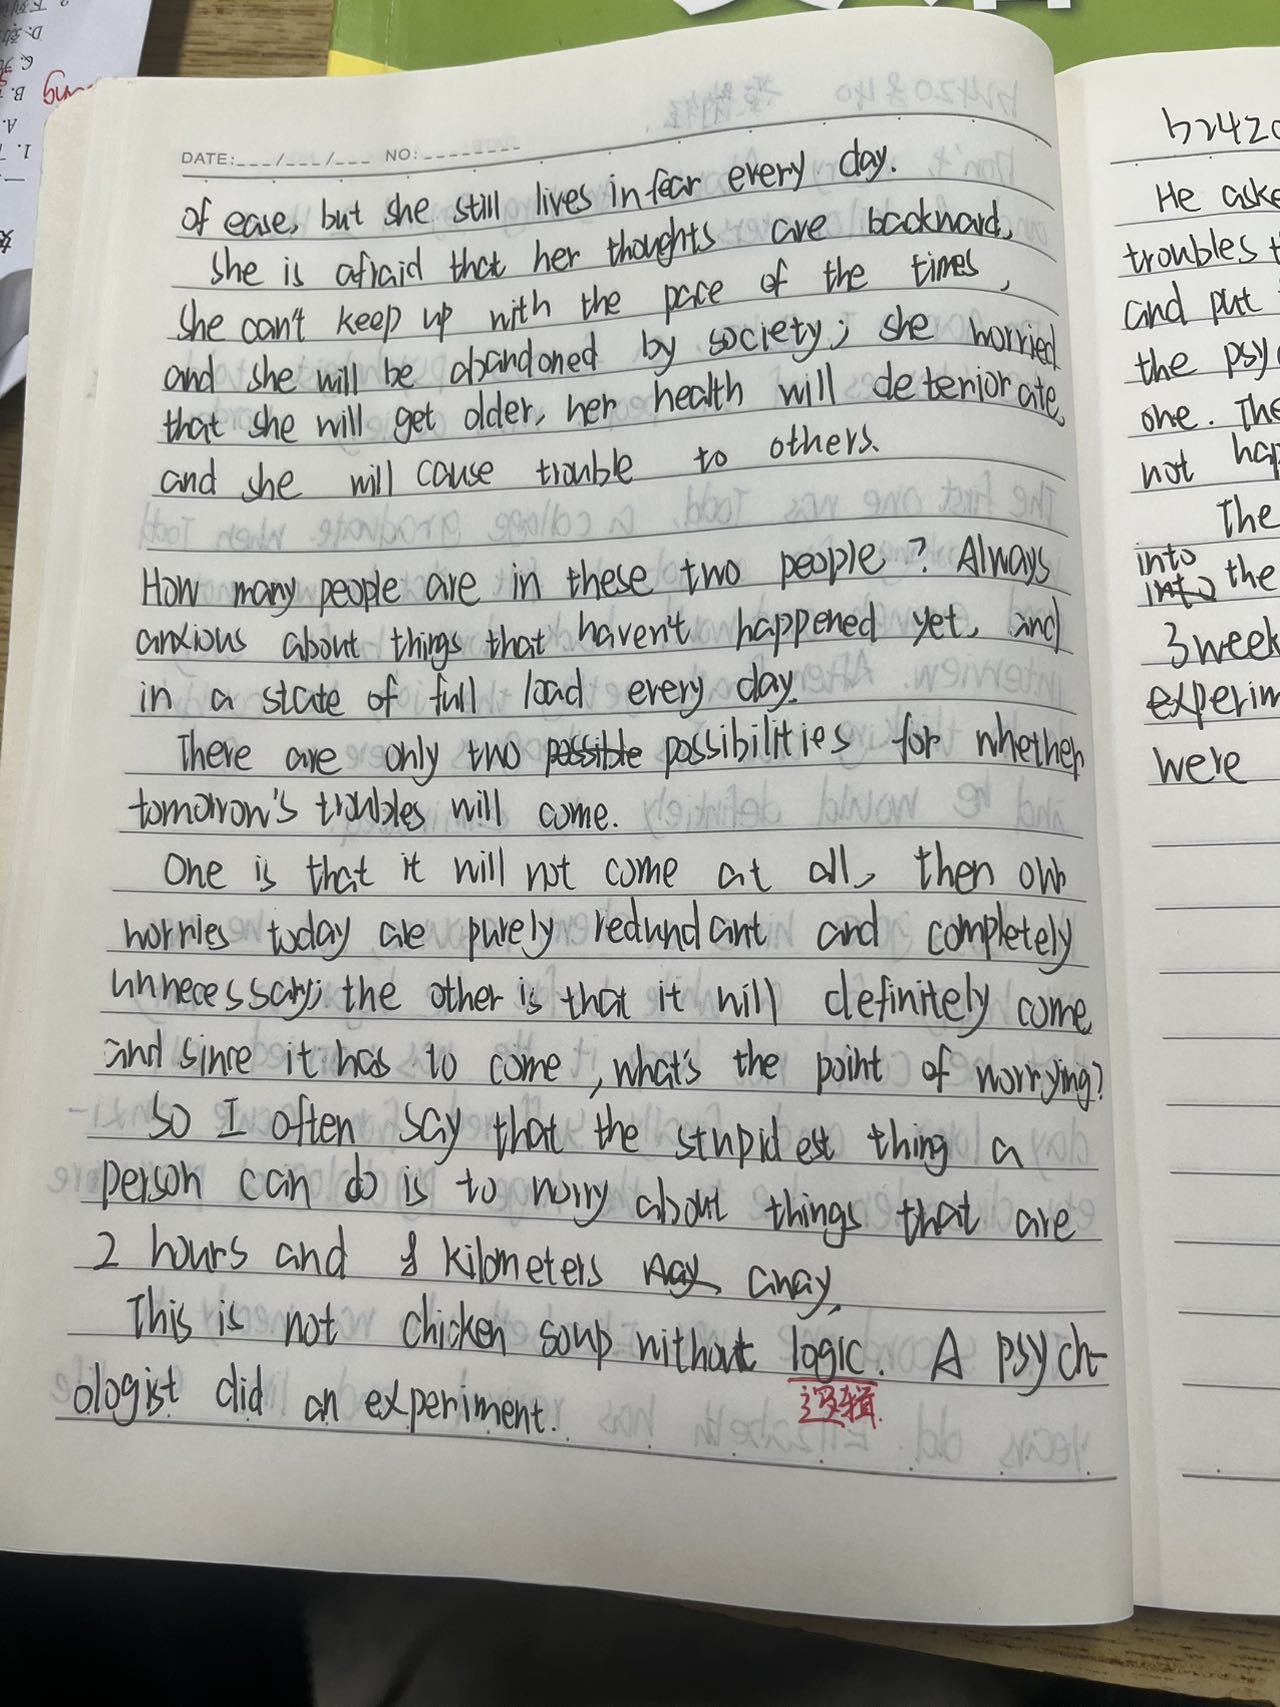 DATE:___/___/___ NO:________
of ease, but she still lives in fear every day.
she is afraid that her thoughts are backward,
she can't keep up with the pace of the times,
and she will be abandoned by society; she worried
that she will get older, her health will deteriorate,
and she will cause trouble to others.
How many people are in these two people? Always
anxious about things that haven't happened yet, and
in a state of full load every day.
There are only two possible possibilities for whether
tomorrow's troubles will come.
One is that it will not come at all, then our
worries today are purely redundant and completely
unnecessary; the other is that it will definitely come
and since it has to come, what's the point of worrying?
so I often say that the stupidest thing a
person can do is to worry about things that are
2 hours and kilometers away.
This is not chicken soup without logic. A psych-
ologist did an experiment.
逻辑
b2420
He aske
troubles t
and put
the psy
one. The
not hap
The
into
into the
3 week
experim
were